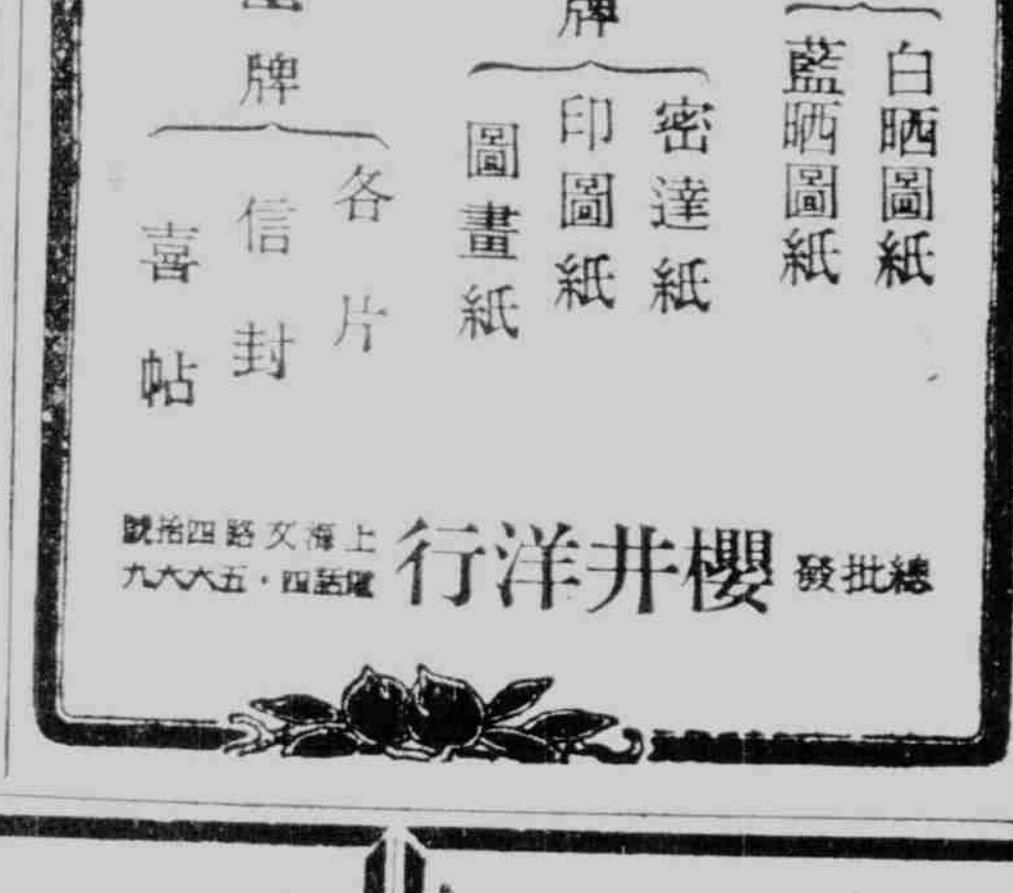 白晒圖紙
藍晒圖紙
牌
密達紙
印圖紙
圖畫紙
牌
各片
信封
喜帖
總批發
櫻井洋行
上海文路四拾號
電話四・五六六九